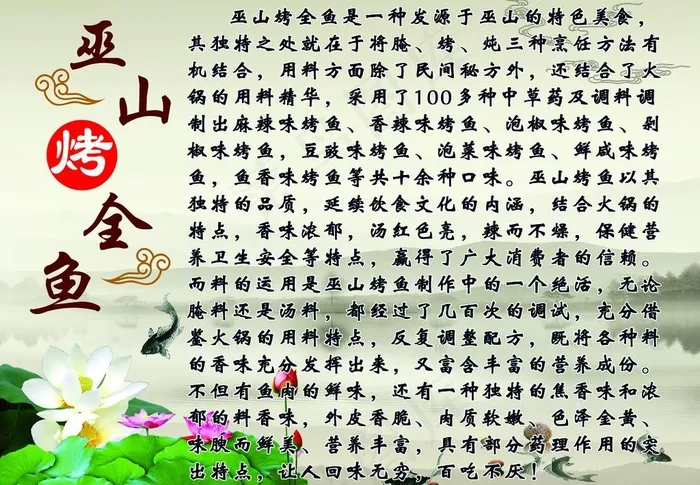 巫山烤全鱼
巫山烤全鱼是一种发源于巫山的特色美食，
其独特之处就在于将腌、烤、炖三种烹饪方法有
机结合，用料方面除了民间秘方外，还结合了火
锅的用料精华，采用了100多种中草药及调料调
制出麻辣味烤鱼、香辣味烤鱼、泡椒味烤鱼、剁
椒味烤鱼，豆豉味烤鱼、泡菜味烤鱼、鲜咸味烤
鱼，鱼香味烤鱼等共十余种口味。巫山烤鱼以其
独特的品质，延续饮食文化的内涵，结合火锅的
特点，香味浓郁，汤红色亮，辣而不燥，保健营
养卫生安全等特点，赢得了广大消费者的信赖。
而料的运用是巫山烤鱼制作中的一个绝活，无论
腌料还是汤料，都经过了几百次的调试，充分借
鉴火锅的用料特点，反复调整配方，既将各种料
的香味充分发挥出来，又富含丰富的营养成份。
不但有鱼肉的鲜味，还有一种独特的焦香味和浓
郁的料香味 外皮香脆、肉质软嫩 色泽金黄、
味腴而鲜美、营养丰富，具有部分药理作用的突
出特点，让人回味无穷，百吃不厌！